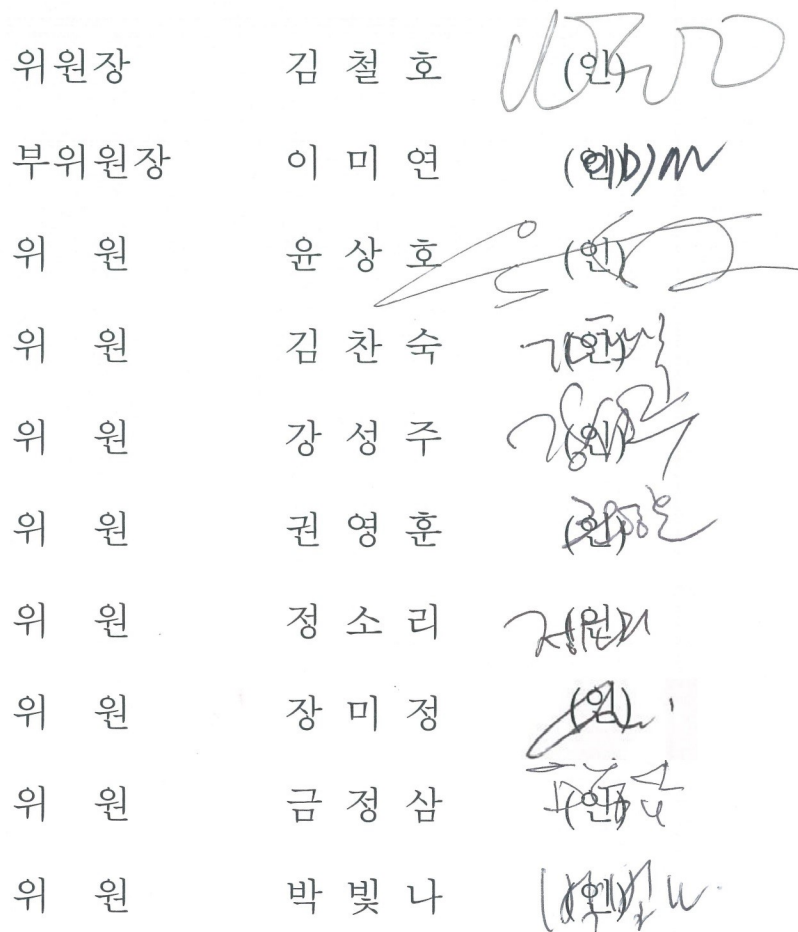 위원장 김 철 호 (인)
부위원장 이 미 연 (인)
위 원 윤 상 호 (인)
위 원 김 찬 숙 (인)
위 원 강 성 주 (인)
위 원 권 영 훈 (인)
위 원 정 소 리 (인)
위 원 장 미 정 (인)
위 원 금 정 삼 (인)
위 원 박 빛 나 (인)